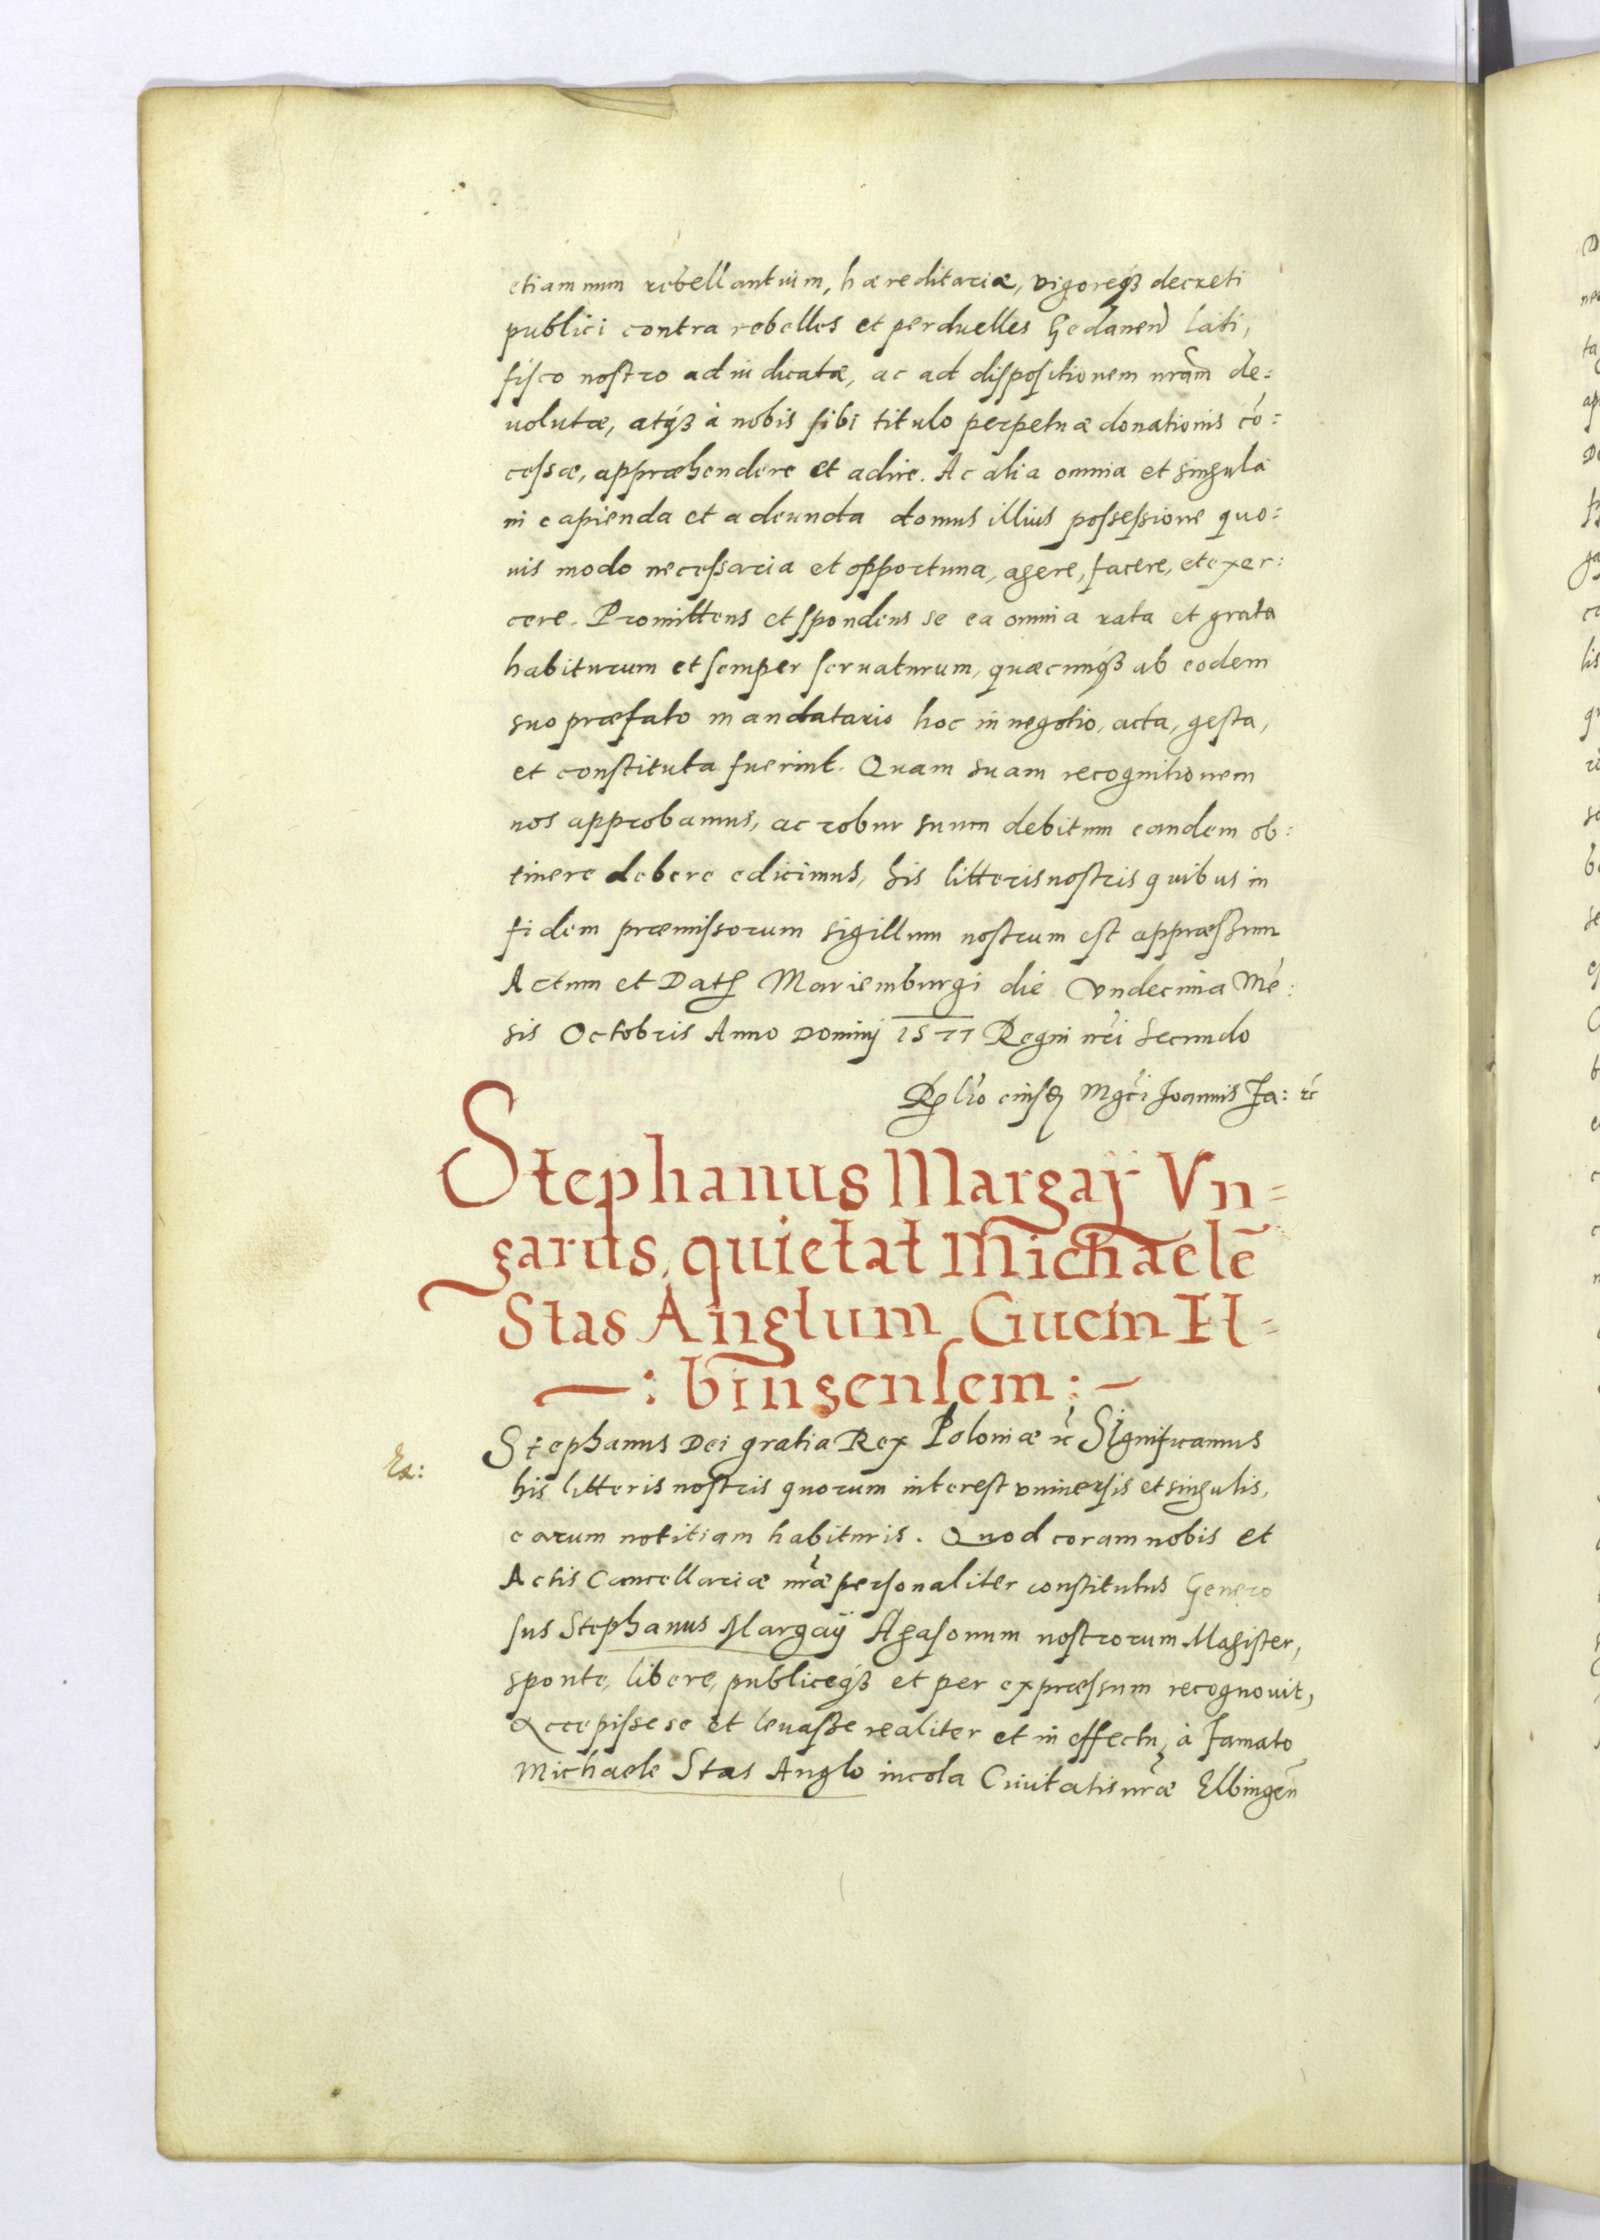 etiamnum rebellantium, hæreditariæ, vigoreqȝ decreti
publici contra rebelles et perduelles Gedanen̄ lati,
fisco nostro adiudicatæ, ac ad dispositionem nr̃am de=
uolutæ, atqȝ à nobis sibi titulo perpetuæ donationis cõ=
cessæ, appræhendere et adire. Ac alia omnia et singula
in capienda et adeunda domus illius possessione quo=
uis modo necessaria et opportuna, agere, facere, et exer:
cere. Promittens et spondens se ea omnia rata et grata
habiturum et semper seruaturum, quæcunqȝ ab eodem
suo præfato mandatario hoc in negotio, acta, gesta,
et constituta fuerint. Quam suam recognitionem
nos approbamus, ac robur suum debitum eandem ob:
tinere debere edicimus, his litteris nostris quibus in
fidem præmissorum sigillum nostrum est appræssum
Actum et Datꝭ Mariemburgi die Vndecima Mẽ:
sis Octobris Anno Dominj 1577 Regni nr̃i Secundo
Rlõ eiusdꝫ Mgci Joannis Za: ꝛc
Stephanus Margaÿ Vn=
garus, quietat Michaelẽ
Stas Anglum Ciuem El=
: bingensem :
Stephanus Dei gratia Rex Poloniæ ꝛc Significamus
Ex:
his litteris nostris quorum interest vniuersis et singulis,
earum notitiam habituris. Quod coram nobis et
Actis Cancellariæ nr̃æ personaliter constitutus Genero
sus Stephanus Margaÿ Agasonum nostrorum Magister,
sponte, libere, publiceqȝ et per expræssum recognouit,
Accepisse se et leuasse realiter et in effectu, à famato
Michaele Stas Anglo incola Ciuitatis nr̃æ Elbingen̄